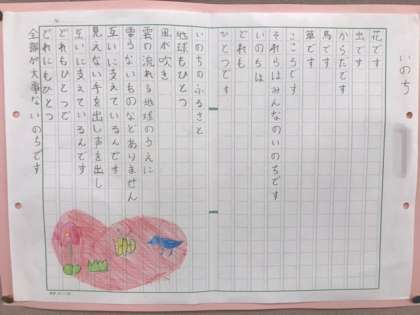 いのち
花です
虫です
からだです
鳥です
草です
こころです
それらはみんなのいのちです
いのちは
どれも
ひとつです
いのちのふるさと
地球もひとつ
風が吹き
雲の流れる地球のうえに
要らないものなどありません
互いに支えているんです
見えない手を出し声を出し
互いに支えているんです
どれもひとつで
どれにもひとつ
全部が大事ないのちです